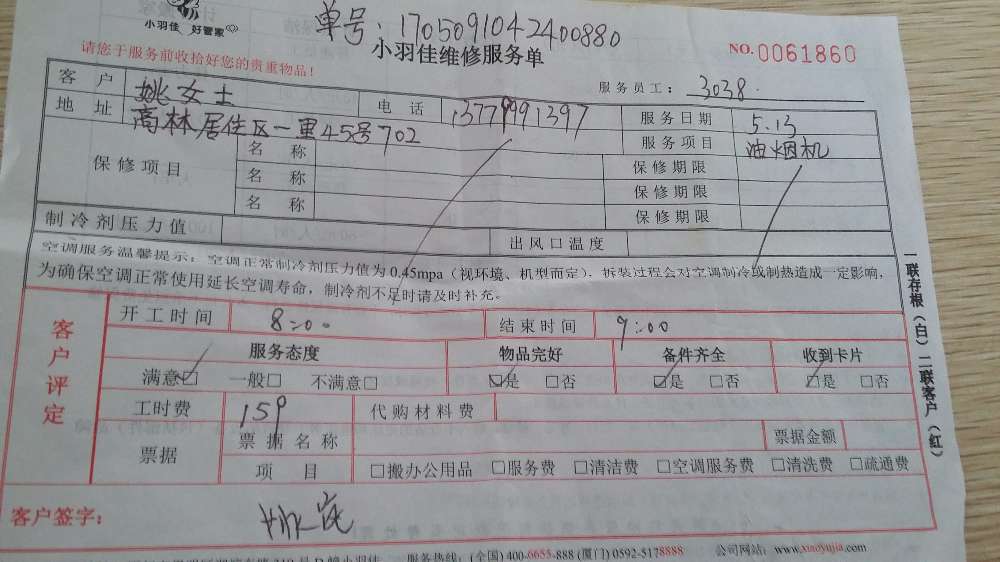 小羽佳 好管家
单号:170509104240088​0
小羽佳维修服务单
NO.0061860
请您于服务前收拾好您的贵重物品！
服务员工：3038.
客户 姚女士 电话 13779991397 服务日期 5.13
地址 高林居住区一里45号702 服务项目 油烟机
保修项目 名称 保修期限
名称 保修期限
名称 保修期限
制冷剂压力值 出风口温度
空调服务温馨提示：空调正常制冷剂压力值为0.45mpa（视环境、机型而定），拆装过程会对空调制冷或制热造成一定影响，
为确保空调正常使用延长空调寿命，制冷剂不足时请及时补充。
客户评定
开工时间 8:00 结束时间 9:00
服务态度 物品完好 备件齐全 收到卡片
满意☑ 一般□ 不满意□ ☑是 □否 ☑是 □否 ☑是 □否
工时费 159 代购材料费
票据 票据名称 票据金额
项目 □搬办公用品 □服务费 □清洁费 □空调服务费 □清洗费 □疏通费
客户签字：
服务热线：(全国) 400-6655-888 (厦门) 0592-5178888 公司网站：www.xiaoyujia.com
一联存根（白）二联客户（红）